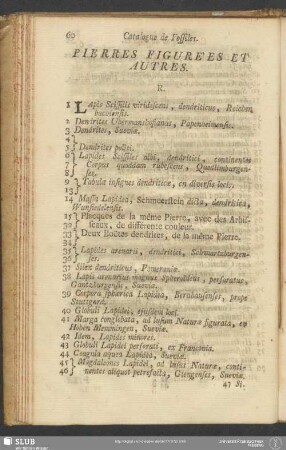 60 Catalogue de Fossiles.
PIERRES FIGURE'ES ET
AUTRES.
R.
1 Lapis Scissilis viridescens, dendriticus, Reichen
2 Dendrites Papenheimensis.
3 Dendrites, Sueviæ.
4
5 Dendrites politi.
6 Lapides Scissiles albi, dendritici, continentes
7 Corpus quoddam rubescens,
8 ses.
9 Tabula insignes dendriticæ, en diversis locis.
13
14 Massa Lapidea, dicta, dendritica,
15 Placques de la même Pierre, avec des Arbis-
seaux, de différente couleur.
33 Deux Boëtes dendrites, de la même Pierre.
34
35 Lapides arenarii, dendritici, Schwartzburgen-
36 ses.
37 Silex dendriticus,
38 Lapis arenarius magnus Sphæroideus, perforatus,
Gontzburgensis, Sueviæ.
39 Corpora sphærica Lapidea, Bernhausenses, prope
Stuttgard.
40 Globuli Lapidei, ejusdem loci.
41 Marga conglobata, ad lusum Naturæ figurata, ex
Hohen Memmingen, Sueviæ.
42 Idem, Lapides minores.
43 Globuli Lapidei perforati, ex Franconia.
44 Lapidea, Sueviæ.
45 Magdaleones Lapidei, ad lusus Naturæ, conti-
46 nentes aliquot petrefacta, Giengenses, Sueviæ.
47 Si.
SLUB